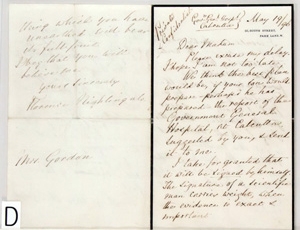 thing which you have
connected with bear
its full fruit
Pray that you will
believe me
yours sincerely
Florence Nightingale
Mrs Gordon
D
May 19/96
SOUTH STREET,
PARK LANE. W.
Dear Madam
Please excuse my delay.
I hope I am not too late.
We think the best plan
would be, if you could
prepare - perhaps he has
prepared - the report of the
Government General
Hospital, at Calcutta,
suggested by you, & send
it to me.
I take for granted that
it will be signed by himself
The signature of a scientific
man carries weight, when
the evidence is exact &
important